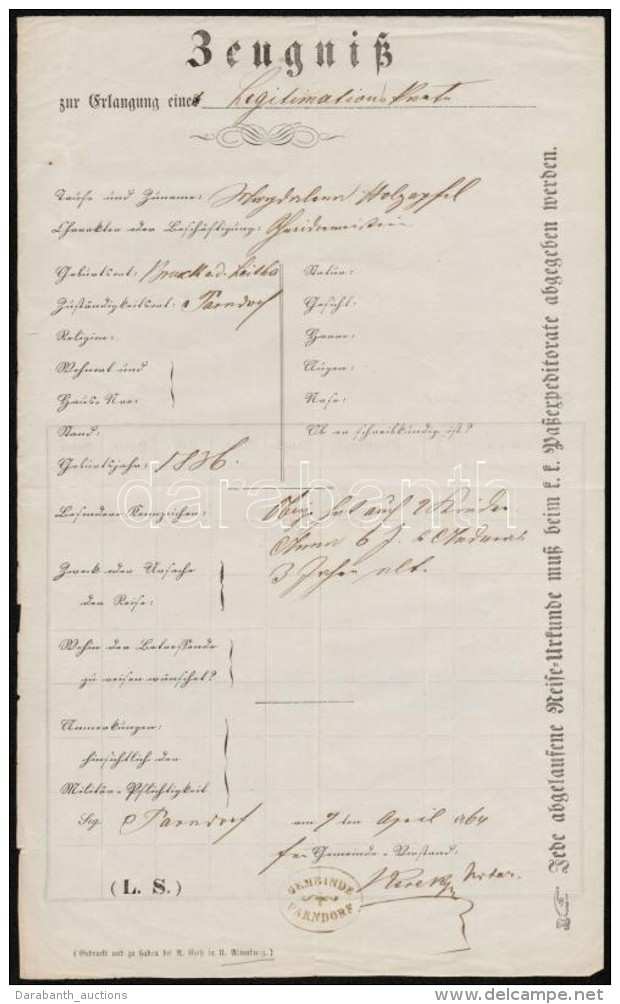 Zeugniß
zur Erlangung einer Legitimations Karte
Taufe und Zuname: Magdalena Holzapfel
Charakter oder Beschäftigung: Schneidermeisterin
Geburtsort: Bruck a. d. Leitha
Zuständigkeitsort: Parndorf
Religion:
Wohnort und
Haus-Nro:
Stand:
Geburtsjahr: 1836.
Statur:
Gesicht:
Haare:
Augen:
Nase:
Ob er schreibkündig ist?
Besondere Kennzeichen:
hat auch 2 Kinder
Anna 6 J. & Andreas
3 Jahre alt.
Zweck oder Ursache
der Reise:
Wohin der Betreffende
zu reisen wünschet?
Anmerkungen:
hinsichtlich der
Militär-Pflichtigkeit
Sig. Parndorf am 7 ten April 864
Gemeinde-Vorstand:
Notar.
(L. S.)
GEMEINDE
PARNDORF
(Gedruckt und zu haben bei A. Czéh in U. Altenburg.)
Jede abgelaufene Reise-Urkunde muß beim k. k. Paßexpeditorate abgegeben werden.
darabanth
Darabanth_auctions
delcampe.net